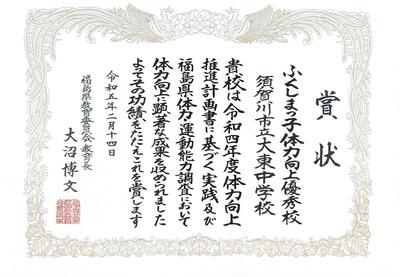 賞状
ふくしまっ子体力向上優秀校
須賀川市立大東中学校
貴校は令和四年度体力向上
推進計画書に基づく実践及び
福島県体力・運動能力調査において
体力向上に顕著な成果を収められました
よってその功績をたたえこれを賞します
令和五年二月十四日
福島県教育委員会教育長
大沼博文